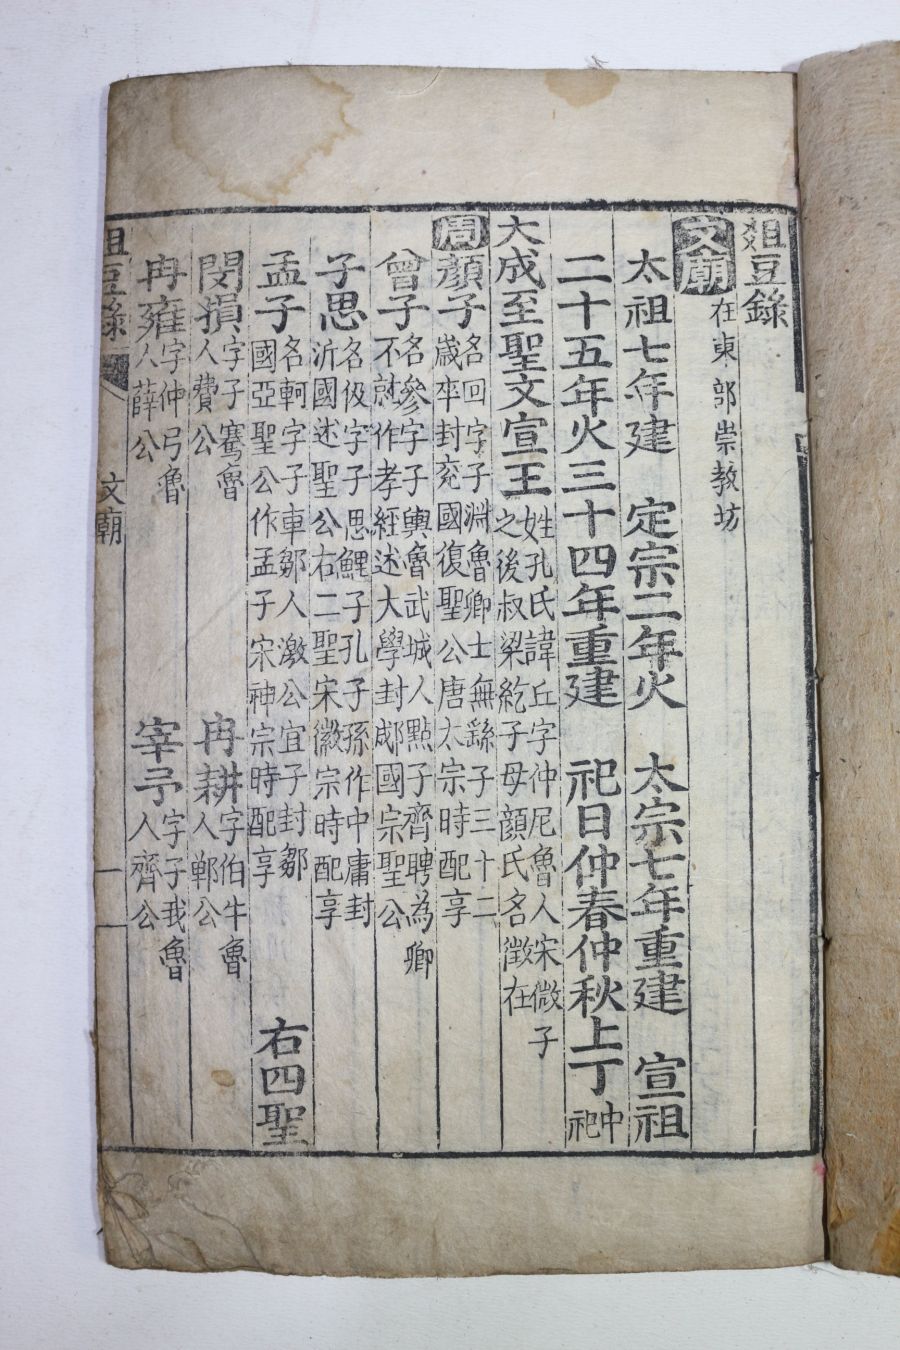 俎豆錄
文廟 在東部崇教坊
太祖七年建 定宗二年火 太宗七年重建 宣祖
二十五年火三十四年重建 祀日仲春仲秋上丁 中祀
大成至聖文宣王 姓孔氏諱丘字仲尼魯人宋微子
之後叔梁紇子母顔氏名徵在
周 顔子 名回字子淵魯卿士無繇子三十二
歲卒封兖國復聖公唐太宗時配享
曾子 名參字子輿魯武城人點子齊聘為卿
不就作孝經述大學封郕國宗聖公
子思 名伋字子思鯉子孔子孫作中庸封
沂國述聖公右二聖宋徽宗時配享
孟子 名軻字子車鄒人激公宜子封鄒
國亞聖公作孟子宋神宗時配享 右四聖
閔損 字子騫魯
人費公
冉耕 字伯牛魯
人鄆公
冉雍 字仲弓魯
人薛公
宰予 字子我魯
人齊公
俎豆錄 文廟 一